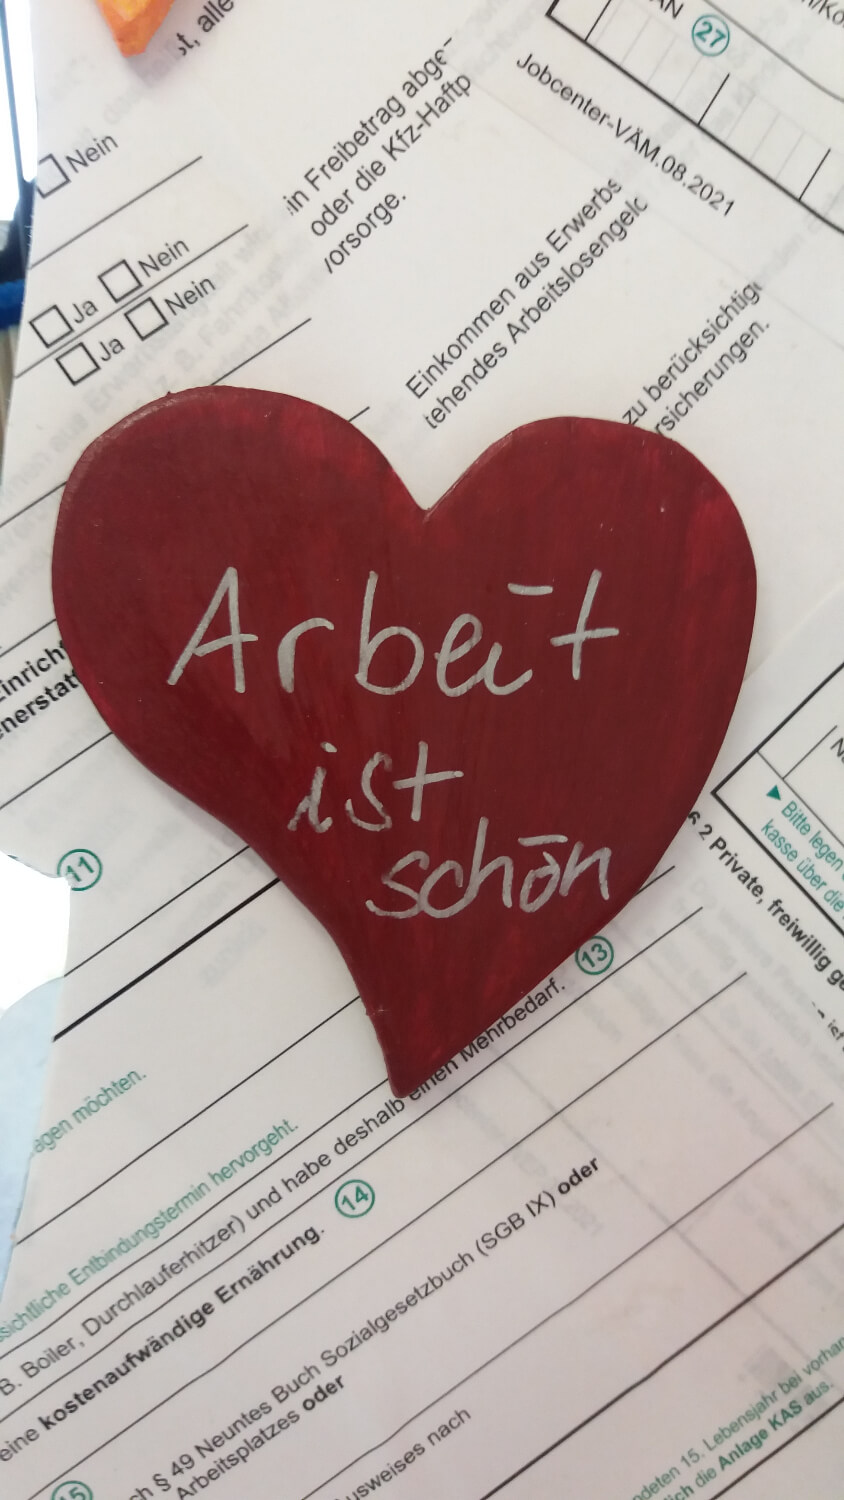 st, alle
AN 27
Jobcenter-VÄM.08.2021
Nein
Ja Nein
Ja Nein
in Freibetrag abge
oder die Kfz-Haftp
orsorge.
Einkommen aus Erwerbs
tehendes Arbeitslosengeld
zu berücksichtig
rsicherungen.
Arbeit
ist
schön
inricht
nerstatt
11
Bitte legen
kasse über die
2 Private, freiwillig ge
13
agen möchten.
sichtliche Entbindungstermin hervorgeht.
B. Boiler, Durchlauferhitzer) und habe deshalb einen Mehrbedarf.
eine kostenaufwändige Ernährung. 14
ch § 49 Neuntes Buch Sozialgesetzbuch (SGB IX) oder
Arbeitsplatzes oder
15
usweises nach
ndeten 15. Lebensjahr bei vorhan
lich die Anlage KAS aus.